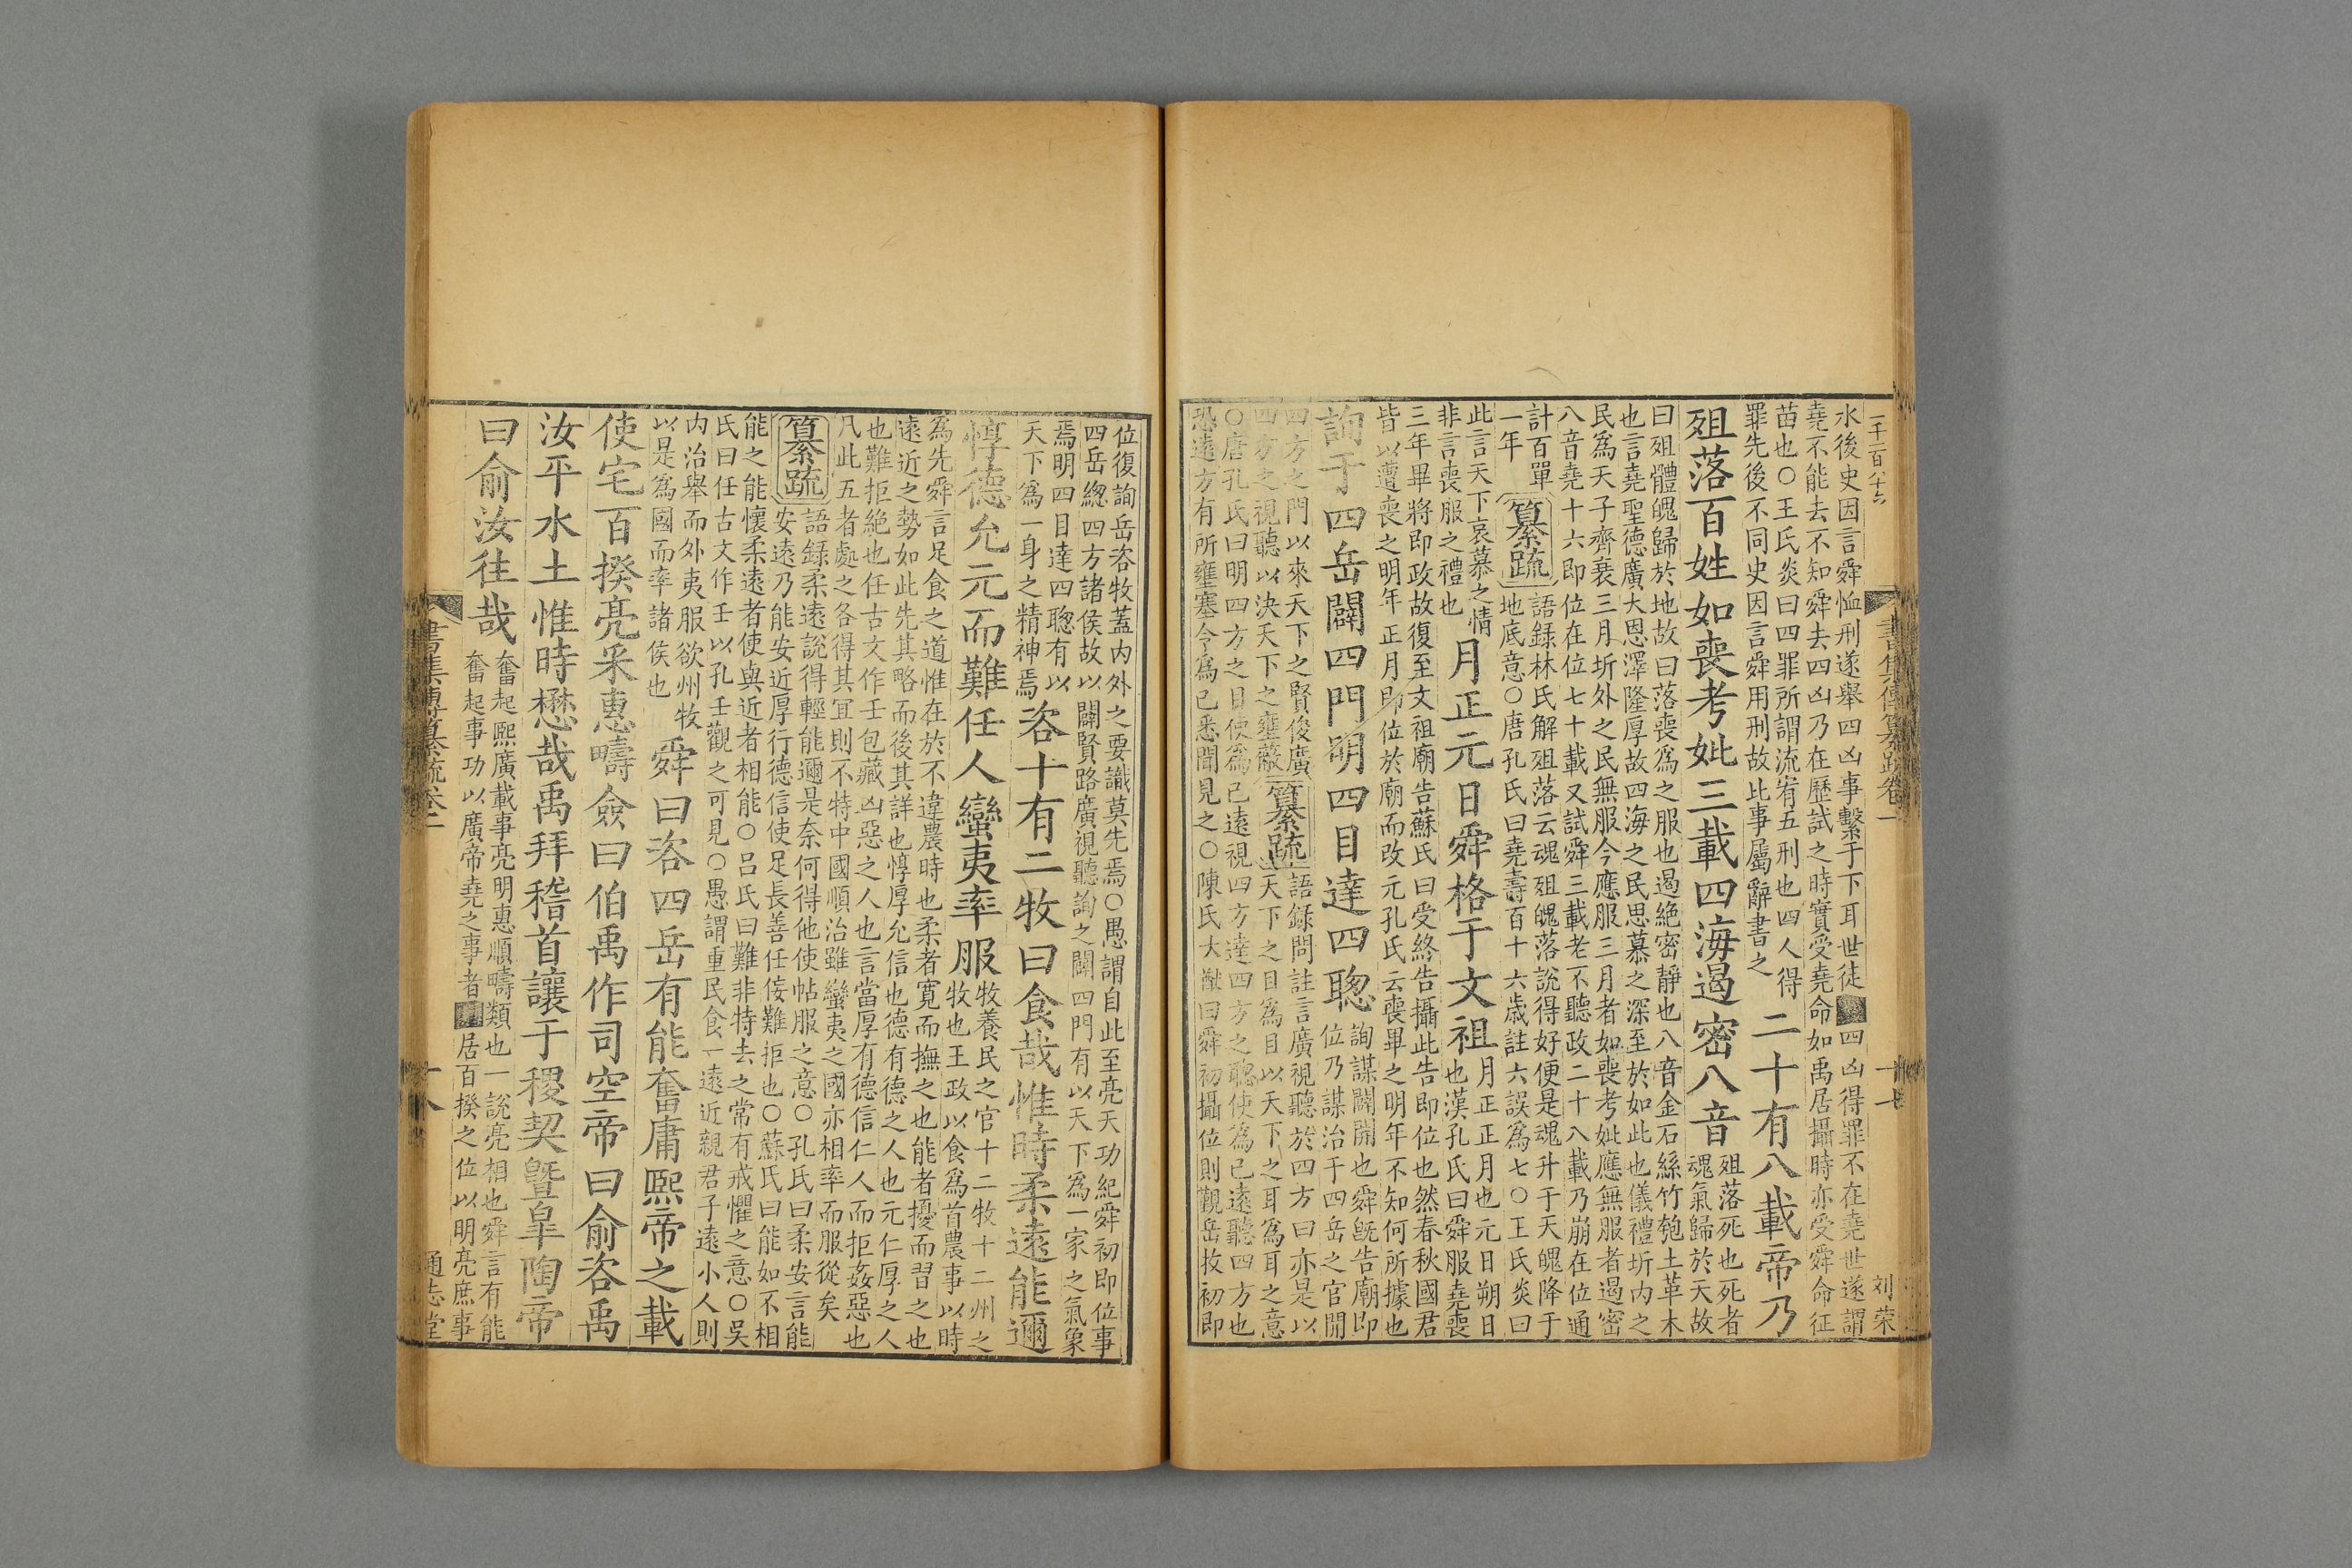 一千二百八十六
書集傳纂疏卷一
十七
刘荣
水後史因言舜恤刑遂舉四凶事繫于下耳世徒
四凶得罪不在堯世遂謂
堯不能去不知舜去四凶乃在歷試之時實受堯命如禹居攝時亦受舜命征
苗也〇王氏炎曰四罪所謂流宥五刑也四人得
罪先後不同史因言舜用刑故此事屬辭書之
二十有八載帝乃
殂落百姓如喪考妣三載四海遏密八音
殂落死也死者
魂氣歸於天故
曰殂體魄歸於地故曰落喪爲之服也遏絕密靜也八音金石絲竹匏土革木
也言堯聖德廣大恩澤隆厚故四海之民思慕之深至於如此也儀禮圻內之
民爲天子齊衰三月圻外之民無服今應服三月者如喪考妣應無服者遏密
八音堯十六即位在位七十載又試舜三載老不聽政二十八載乃崩在位通
計百單
一年
纂疏
語録林氏解殂落云魂殂魄落說得好便是魂升于天魄降于
地底意〇唐孔氏曰堯壽百十六歲註六誤爲七〇王氏炎曰
此言天下哀慕之情
非言喪服之禮也
月正元日舜格于文祖
月正正月也元日朔日
也漢孔氏曰舜服堯喪
三年畢將即政故復至文祖廟告蘇氏曰受終告攝此告即位也然春秋國君
皆以遭喪之明年正月即位於廟而改元孔氏云喪畢之明年不知何所據也
詢于四岳闢四門明四目達四聰
詢謀闢開也舜既告廟即
位乃謀治于四岳之官開
四方之門以來天下之賢俊廣
四方之視聽以決天下之壅蔽
纂疏
語録問註言廣視聽於四方曰亦是以
天下之目爲目以天下之耳爲耳之意
〇唐孔氏曰明四方之目使爲已遠視四方達四方之聰使爲已遠聽四方也
恐遠方有所壅塞今爲已悉聞見之〇陳氏大猷曰舜初攝位則觀岳牧初即
位復詢岳咨牧蓋內外之要識莫先焉〇愚謂自此至亮天功紀舜初即位事
四岳總四方諸侯故以闢賢路廣視聽詢之闢四門有以天下爲一家之氣象
焉明四目達四聰有以
天下爲一身之精神焉
咨十有二牧曰食哉惟時柔遠能邇
惇德允元而難任人蠻夷率服
牧養民之官十二牧十二州之
牧也王政以食爲首農事以時
爲先舜言足食之道惟在於不違農時也柔者寬而撫之也能者擾而習之也
遠近之勢如此先其略而後其詳也惇厚允信也德有德之人也元仁厚之人
也難拒絕也任古文作壬包藏凶惡之人也言當厚有德信仁人而拒姦惡也
凡此五者處之各得其宜則不特中國順治雖蠻夷之國亦相率而服從矣
纂疏
語録柔遠說得輕能邇是奈何得他使帖服之意〇孔氏曰柔安言能
安遠乃能安近厚行德信使足長善任侫難拒也〇蘇氏曰能如不相
能之能懷柔遠者使與近者相能〇呂氏曰難非特去之常有戒懼之意〇吳
氏曰任古文作壬以孔壬觀之可見〇愚謂重民食一遠近親君子遠小人則
內治舉而外夷服欲州牧
以是爲國而率諸侯也
舜曰咨四岳有能奮庸熙帝之載
使宅百揆亮采惠疇僉曰伯禹作司空帝曰俞咨禹
汝平水土惟時懋哉禹拜稽首讓于稷契暨皐陶帝
曰俞汝往哉
奮起熙廣載事亮明惠順疇類也一說亮相也舜言有能
奮起事功以廣帝堯之事者
居百揆之位以明亮庶事
書集傳纂疏卷一
十八
通志堂